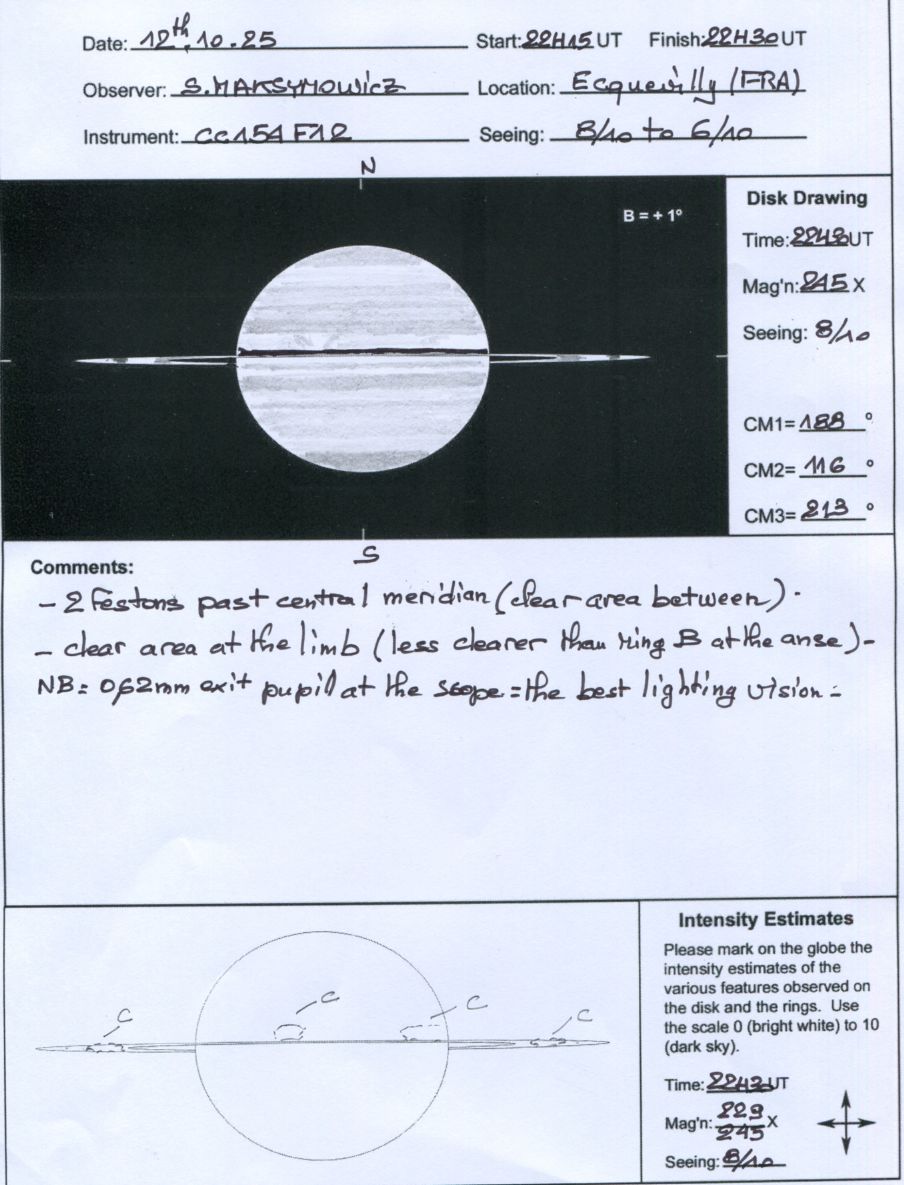 Date: 12th.10.25 Start: 22H15 UT Finish: 22H30 UT
Observer: S.MAKSYMOWicZ Location: Ecquevilly (FRA)
Instrument: CC154 F12 Seeing: 8/10 to 6/10
N
B = + 1°
Disk Drawing
Time: UT
Mag'n: 245 X
Seeing: 8/10
CM1= 188 °
CM2= 116 °
CM3= 213 °
S
Comments:
- 2 Festons past central meridian (clear area between).
- clear area at the limb (less clearer than ring B at the anse)-
NB: 0,62mm exit pupil at the scope = the best lighting vision -
C C C C
Intensity Estimates
Please mark on the globe the
intensity estimates of the
various features observed on
the disk and the rings. Use
the scale 0 (bright white) to 10
(dark sky).
Time: UT
Mag'n: 229
245 X
Seeing: 8/10